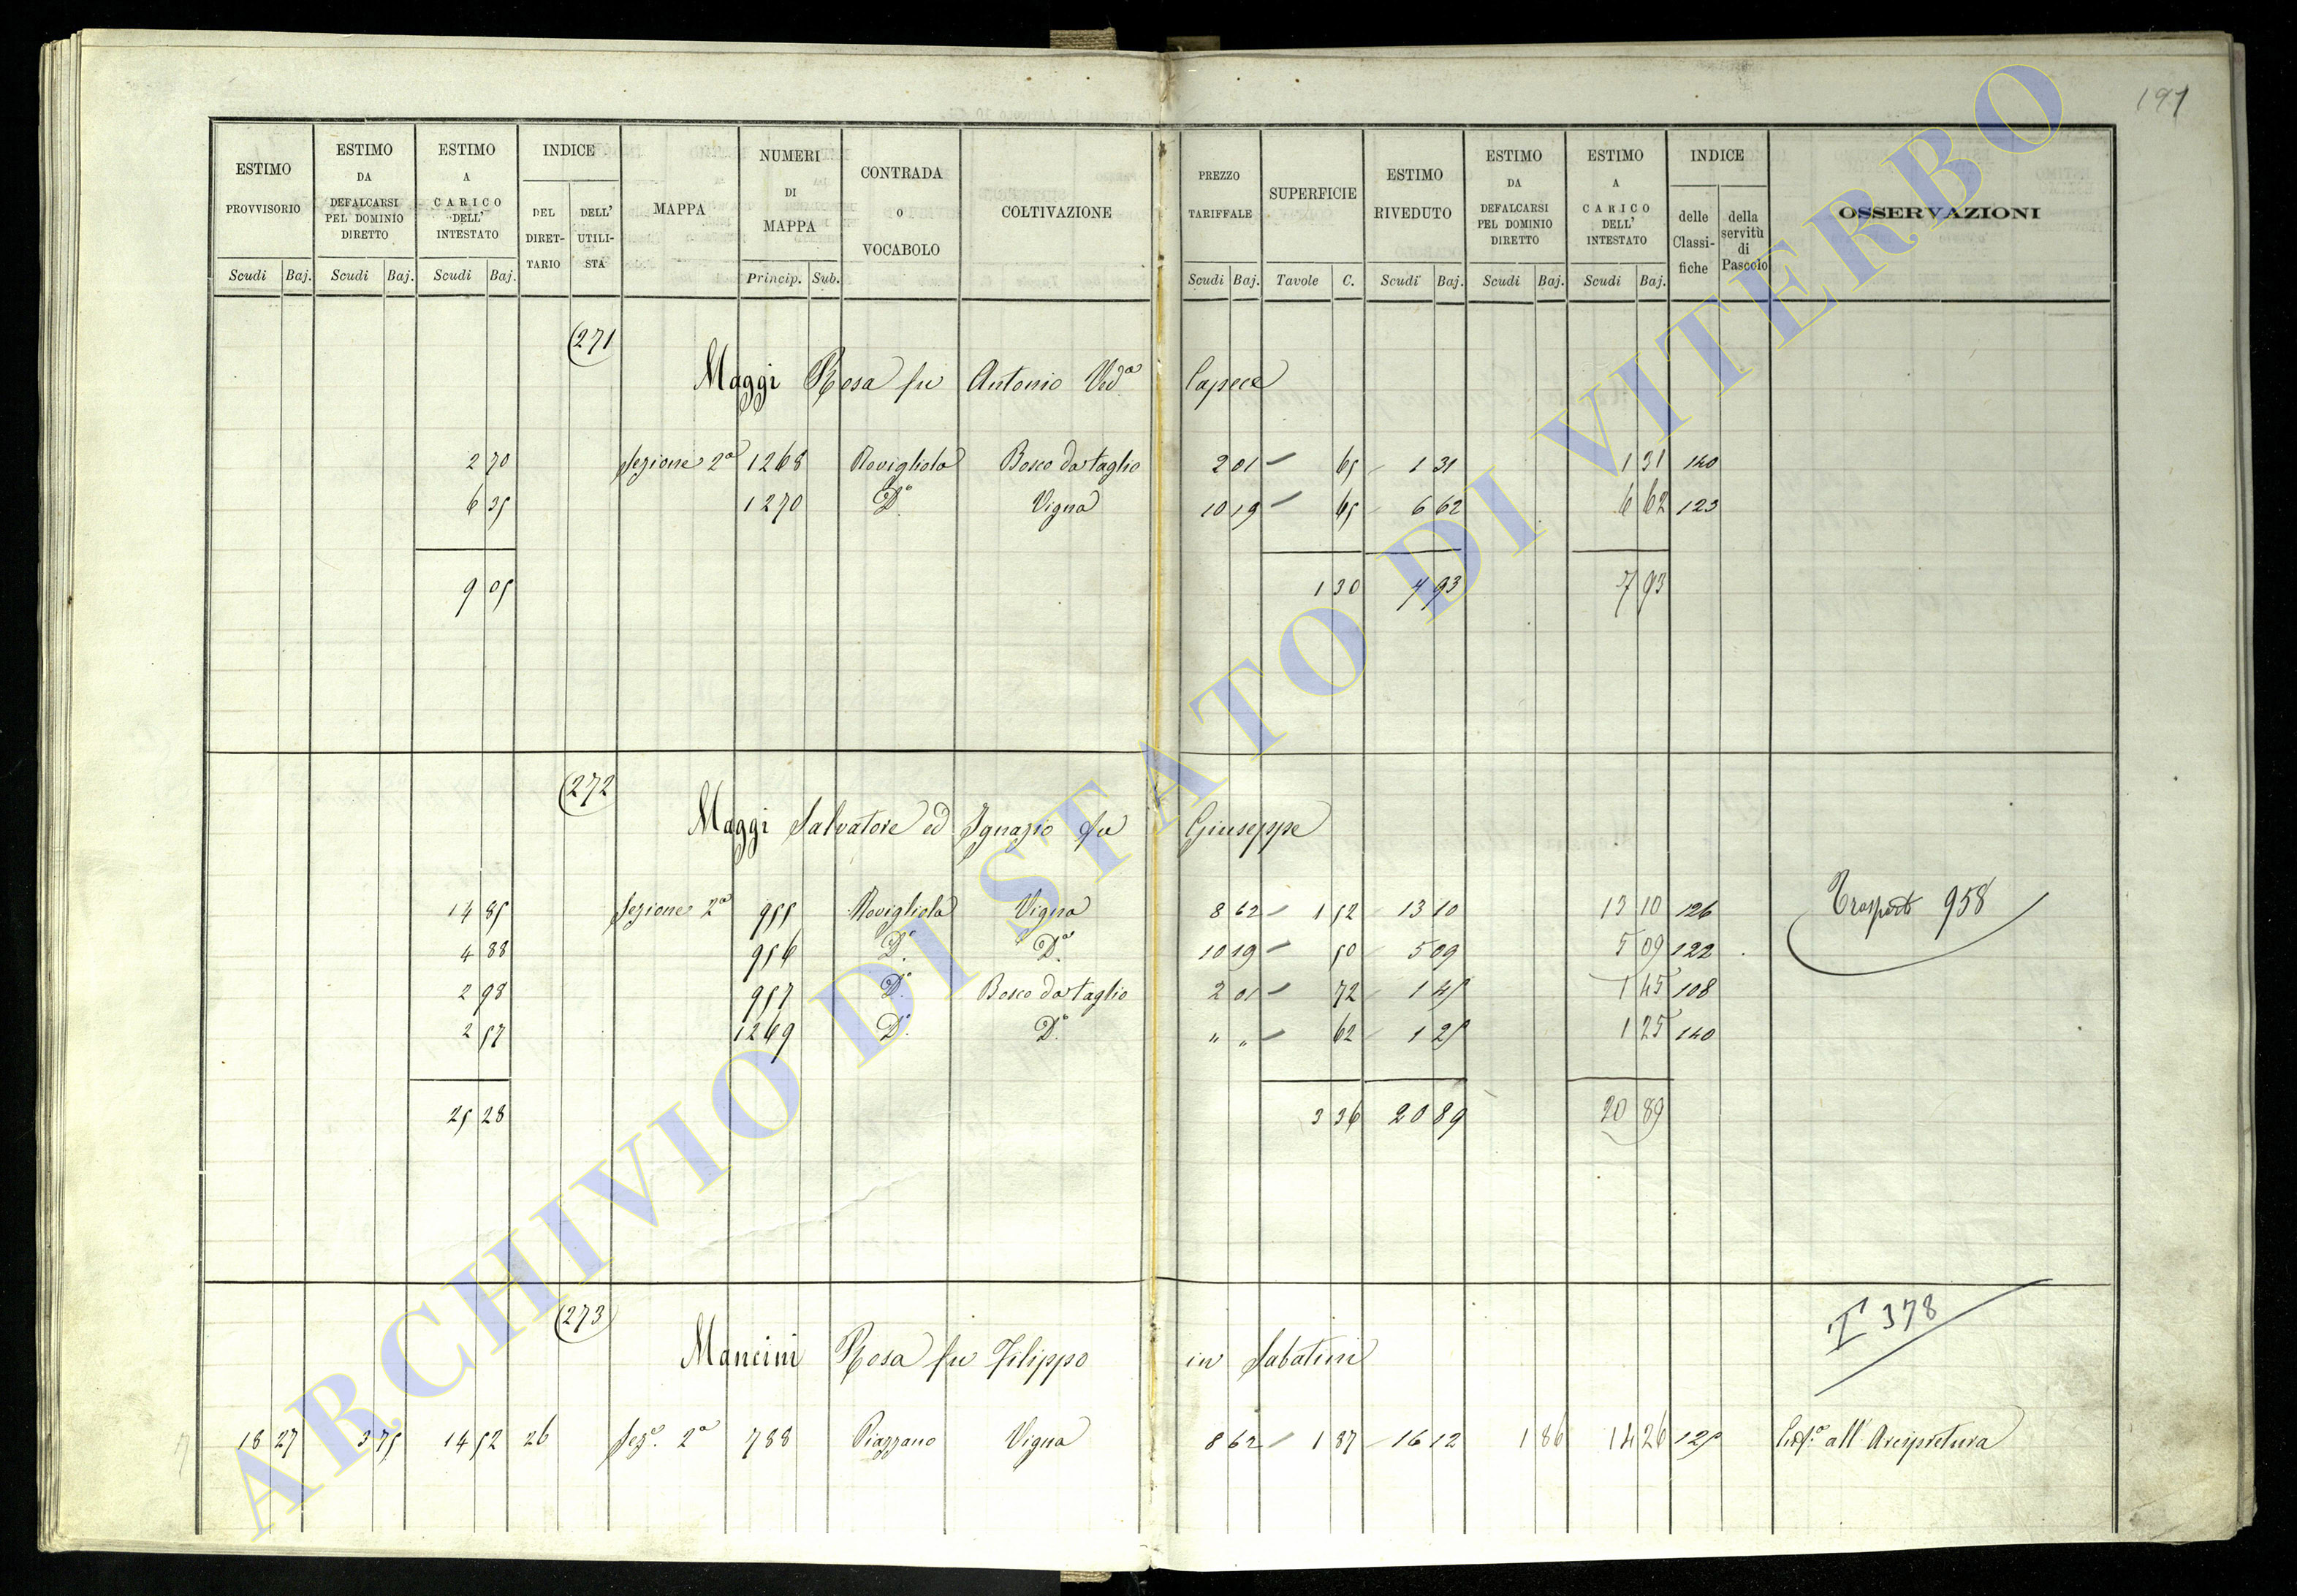 191
ESTIMO PROVVISORIO ESTIMO DA DEFALCARSI PEL DOMINIO DIRETTO ESTIMO A CARICO DELL' INTESTATO INDICE DEL DIRET-TARIO DELL' UTILI-STA MAPPA NUMERI DI MAPPA CONTRADA O VOCABOLO COLTIVAZIONE PREZZO TARIFFALE SUPERFICIE ESTIMO RIVEDUTO ESTIMO DA DEFALCARSI PEL DOMINIO DIRETTO ESTIMO A CARICO DELL' INTESTATO INDICE delle Classi-fiche della servitù di Pascolo OSSERVAZIONI
Scudi Baj. Scudi Baj. Scudi Baj. Princip. Sub. Scudi Baj. Tavole C. Scudi Baj. Scudi Baj. Scudi Baj.
271
Maggi Rosa fu Antonio Ved.a Capece
2 70 Sezione 2a 1268 Rovigliola Bosco da taglio 2 01 – 65 – 1 31 1 31 140
6 35 1270 D.o Vigna 10 19 – 65 – 6 62 6 62 123
9 05 1 30 7 93 7 93
272
Maggi Salvatore ed Ignazio fu Giuseppe
14 85 Sezione 2a 955 Rovigliola Vigna 8 62 – 1 52 – 13 10 13 10 126 Trasporto 958
4 88 956 D.o D.a 10 19 – 50 – 5 09 5 09 122
2 98 957 D.o Bosco da taglio 2 01 – 72 – 1 45 1 45 108
2 57 1269 D.o D.o " " – 62 – 1 25 1 25 140
25 28 3 36 20 89 20 89
273
Mancini Rosa fu Filippo in Sabatini
I 378
18 27 3 75 14 52 26 Sez.e 2a 788 Piazzano Vigna 8 62 – 1 87 – 16 12 1 86 14 26 125 all' Arcipretura
ARCHIVIO DI STATO DI VITERBO